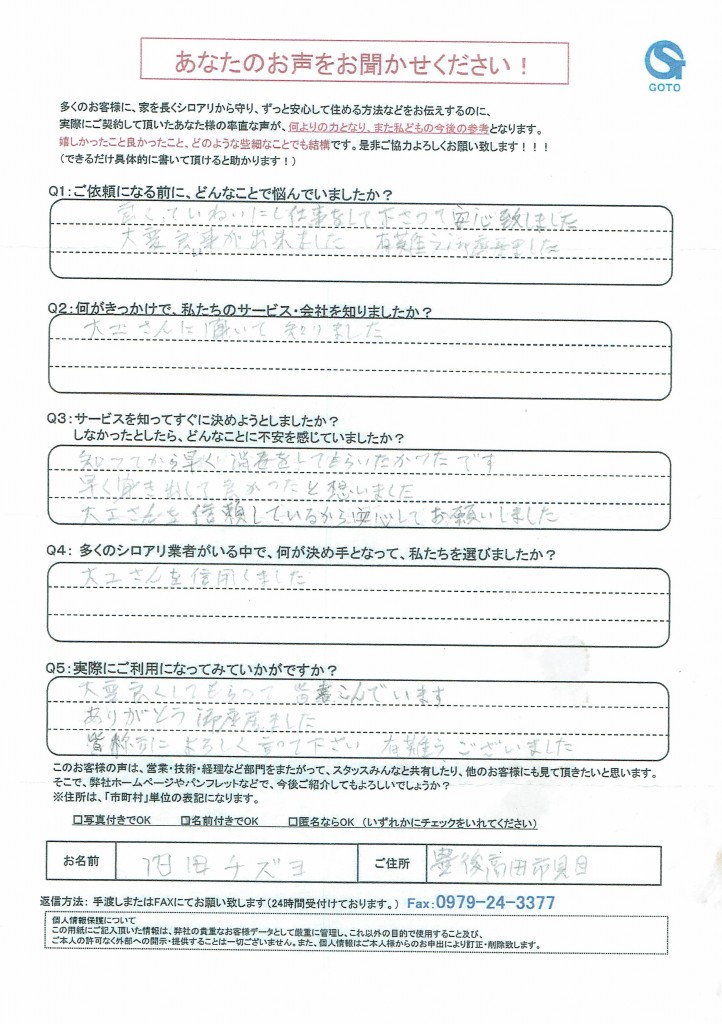 あなたのお声をお聞かせください！
GOTO
多くのお客様に、家を長くシロアリから守り、ずっと安心して住める方法などをお伝えするのに、
実際にご契約して頂いたあなた様の率直な声が、何よりの力となり、また私どもの今後の参考となります。
嬉しかったこと良かったこと、どのような些細なことでも結構です。是非ご協力よろしくお願い致します！！！
（できるだけ具体的に書いて頂けると助かります！）
Q1：ご依頼になる前に、どんなことで悩んでいましたか？
良くていねいにし仕事をして下さって安心致しました
大変良い事が出来ました 有難う御座居ました
Q2：何がきっかけで、私たちのサービス・会社を知りましたか？
大工さんに聞いて知りました
Q3：サービスを知ってすぐに決めようとしましたか？
しなかったとしたら、どんなことに不安を感じていましたか？
知ってから早く消毒をしてもらいたかったです
早く が出して良かったと想いました
大工さんを信頼しているから安心してお願いしました
Q4： 多くのシロアリ業者がいる中で、何が決め手となって、私たちを選びましたか？
大工さんを信用しました
Q5：実際にご利用になってみていかがですか？
大変良くしてもらって 喜こんでいます
ありがとう御座居ました
皆様方によろしく言って下さい 有難うございました
このお客様の声は、営業・技術・経理など部門をまたがって、スタッスみんなと共有したり、他のお客様にも見て頂きたいと思います。
そこで、弊社ホームページやパンフレットなどで、今後ご紹介してもよろしいでしょうか？
※住所は、「市町村」単位の表記になります。
□写真付きでOK ☑名前付きでOK □匿名ならOK （いずれかにチェックをいれてください）
お名前 チズヨ ご住所 豊後高田市見目
返信方法： 手渡しまたはFAXにてお願い致します（24時間受付ております。） Fax：0979-24-3377
個人情報保護について
この用紙にご記入頂いた情報は、弊社の貴重なお客様データとして厳重に管理し、これ以外の目的で使用すること及び、
ご本人の許可なく外部への開示・提供することは一切ございません。また、個人情報はご本人様からのお申出により訂正・削除致します。